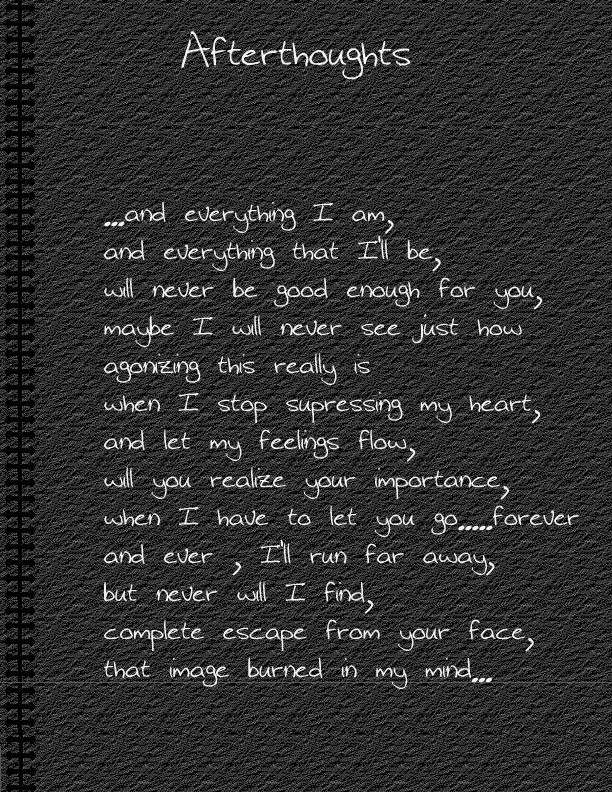 Afterthoughts
...and everything I am,
and everything that I'll be,
will never be good enough for you,
maybe I will never see just how
agonizing this really is
when I stop supressing my heart,
and let my feelings flow,
will you realize your importance,
when I have to let you go.....forever
and ever , I'll run far away,
but never will I find,
complete escape from your face,
that image burned in my mind...